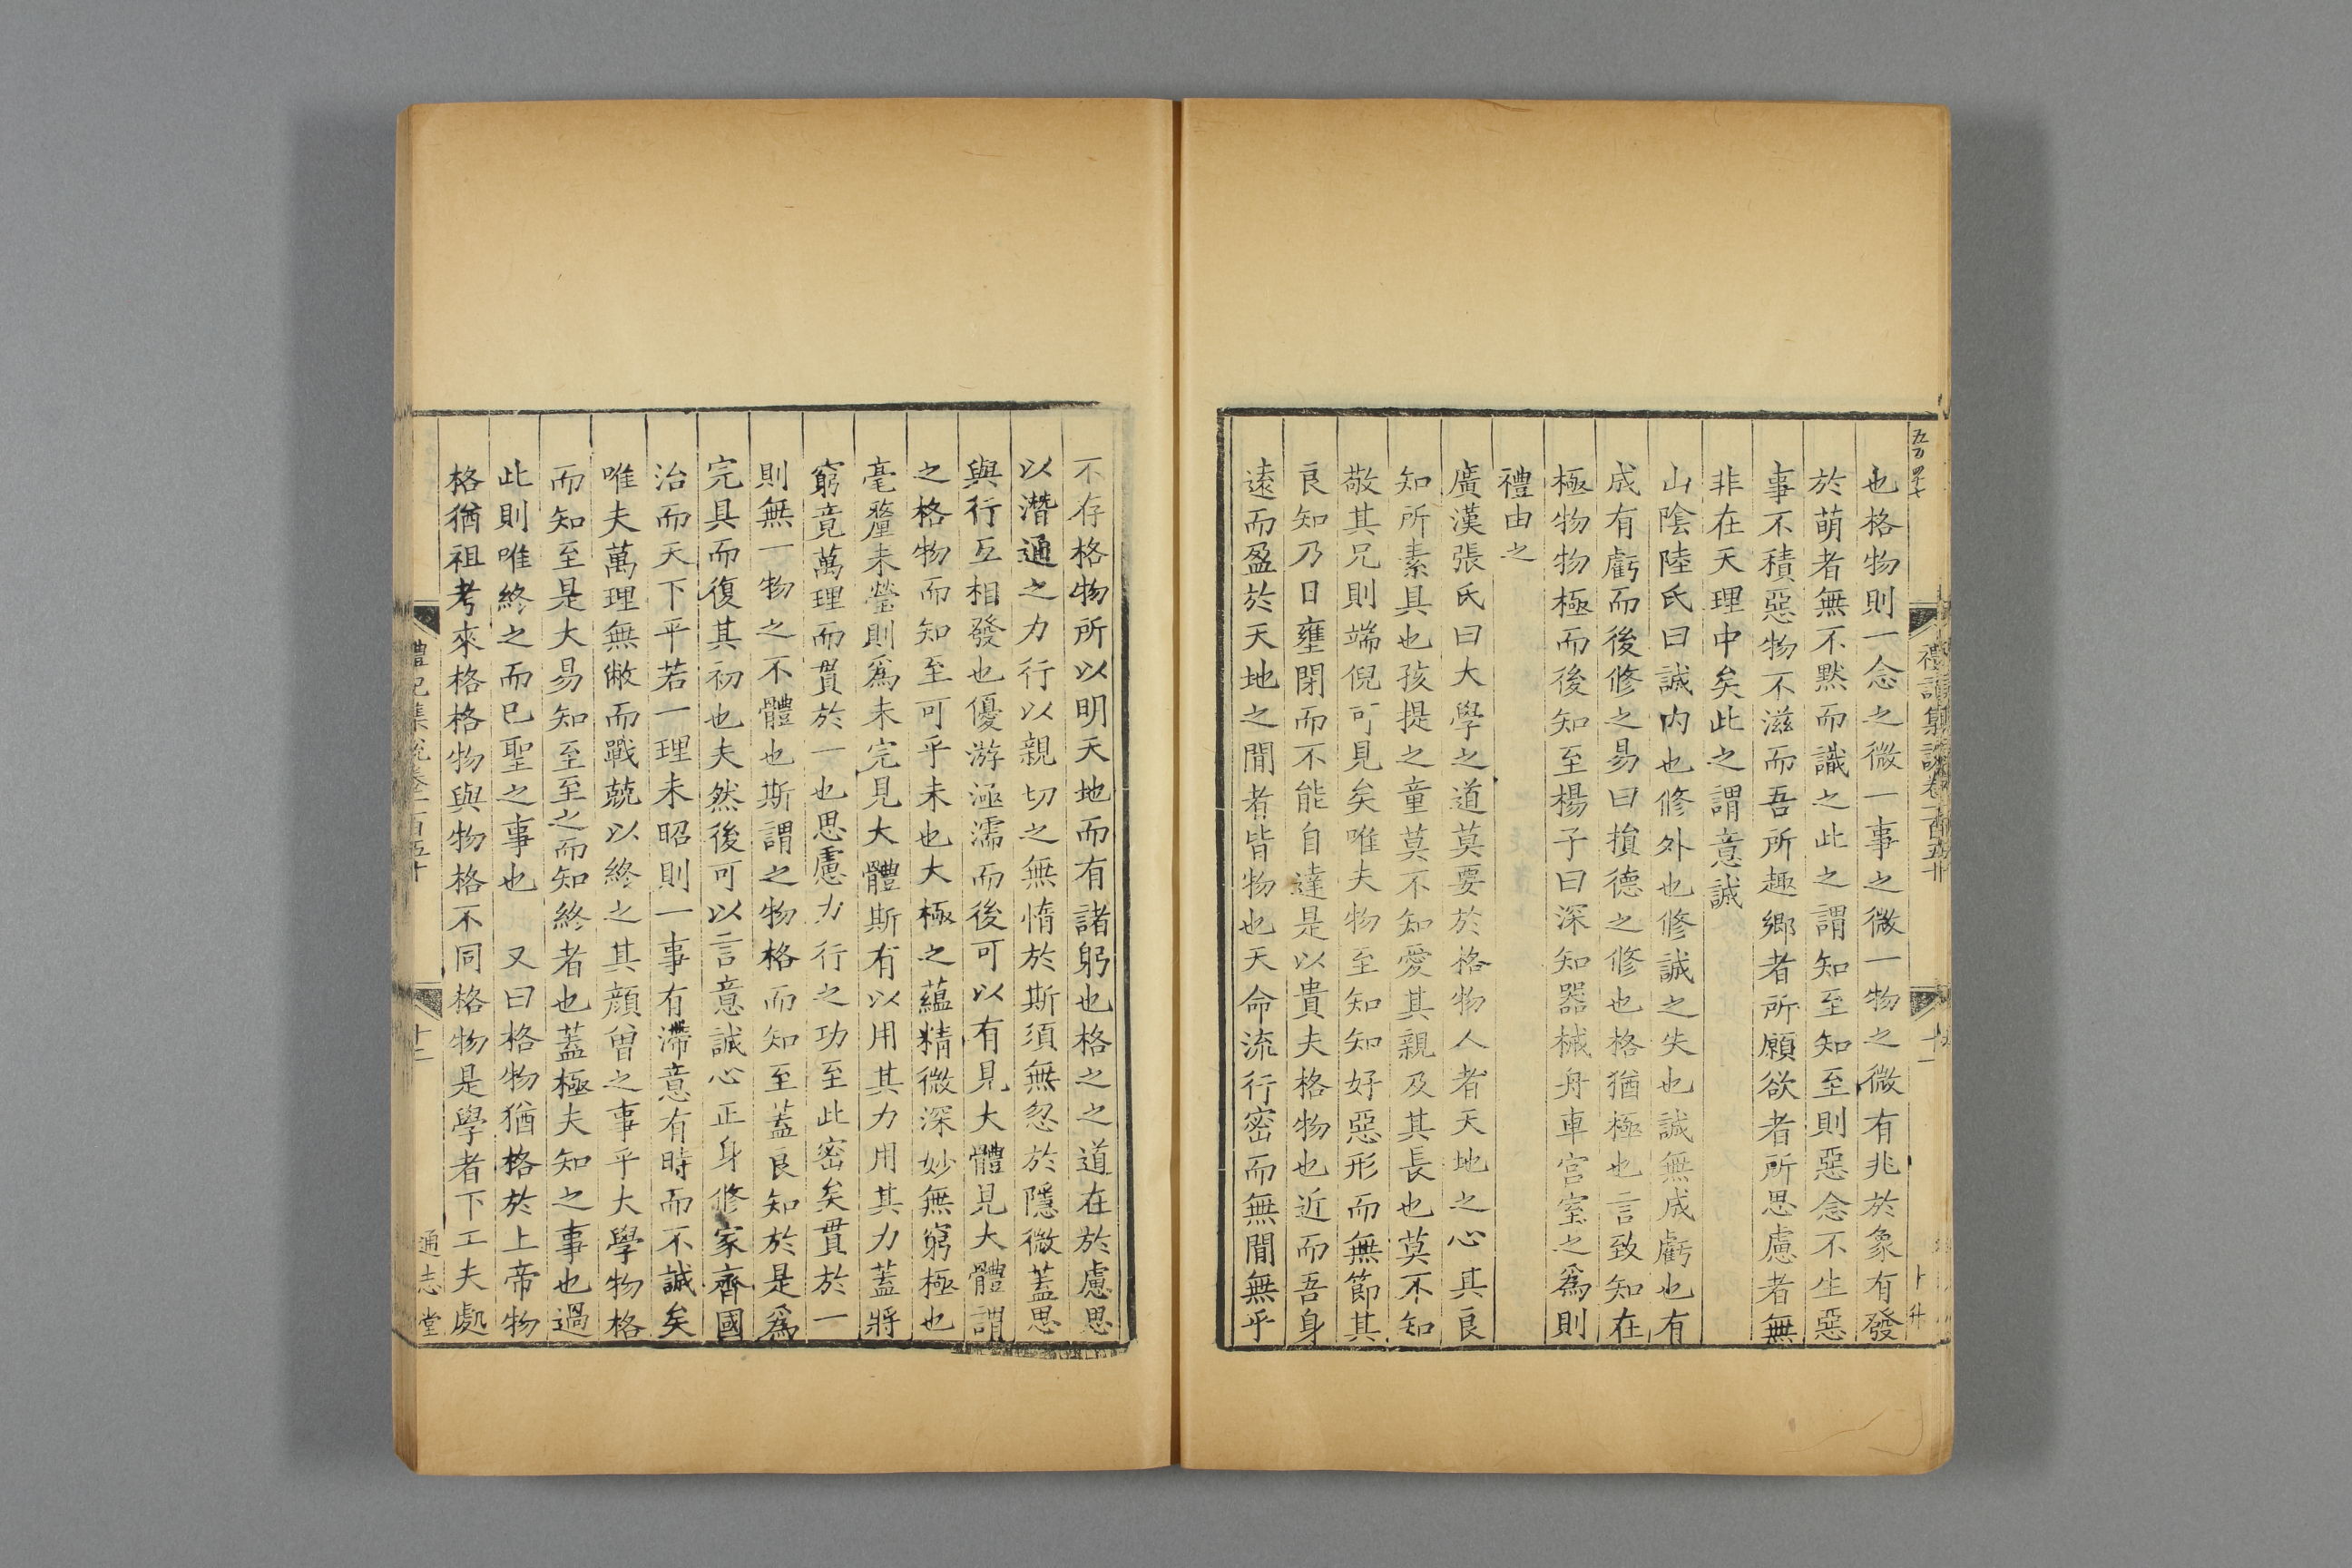 禮記集說卷一百五十
十一
也格物則一念之微一事之微一物之微有兆於象有發
於萌者無不黙而識之此之謂知至知至則惡念不生惡
事不積惡物不滋而吾所趣鄉者所願欲者所思慮者無
非在天理中矣此之謂意誠
山陰陸氏曰誠内也修外也修誠之失也誠無成虧也有
成有虧而後修之易曰損德之修也格猶極也言致知在
極物物極而後知至楊子曰深知器械舟車宫室之爲則
禮由之
廣漢張氏曰大學之道莫要於格物人者天地之心其良
知所素具也孩提之童莫不知愛其親及其長也莫不知
敬其兄則端倪可見矣唯夫物至知知好惡形而無節其
良知乃日壅閉而不能自達是以貴夫格物也近而吾身
遠而盈於天地之閒者皆物也天命流行密而無閒無乎
不存格物所以明天地而有諸躬也格之之道在於慮思
以潛通之力行以親切之無惰於斯須無忽於隱微蓋思
與行互相發也優游涵濡而後可以有見大體見大體謂
之格物而知至可乎未也大極之蘊精微深妙無窮極也
毫釐未瑩則爲未完見大體斯有以用其力用其力蓋將
窮竟萬理而貫於一也思慮力行之功至此密矣貫於一
則無一物之不體也斯謂之物格而知至蓋良知於是爲
完具而復其初也夫然後可以言意誠心正身修家齊國
治而天下平若一理未昭則一事有滯意有時而不誠矣
唯夫萬理無敝而戰兢以終之其顔曾之事乎大學物格
而知至是大易知至至之而知終者也蓋極夫知之事也過
此則唯終之而已聖之事也 又曰格物猶格於上帝物
格猶祖考來格格物與物格不同格物是學者下工夫處
禮記集說卷一百五十
十二
通志堂